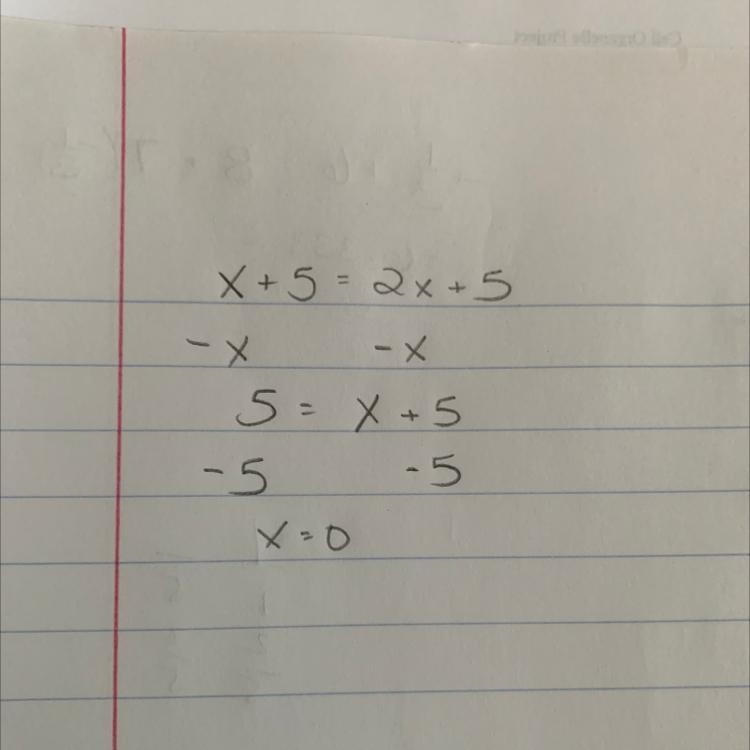 x + 5 = 2x + 5
- x - x
5 = x + 5
- 5 - 5
x = 0